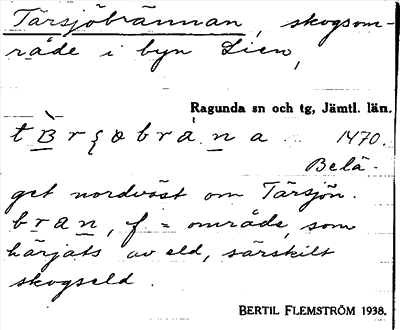 Tärsjöbrännan, skogsom-
råde i byn Lien,
Ragunda sn och tg, Jämtl. län.
1470.
Belä-
get nordväst om Tärsjön.
bran, f = område, som
härjats av eld, särskilt
skogseld.
BERTIL FLEMSTRÖM 1938.